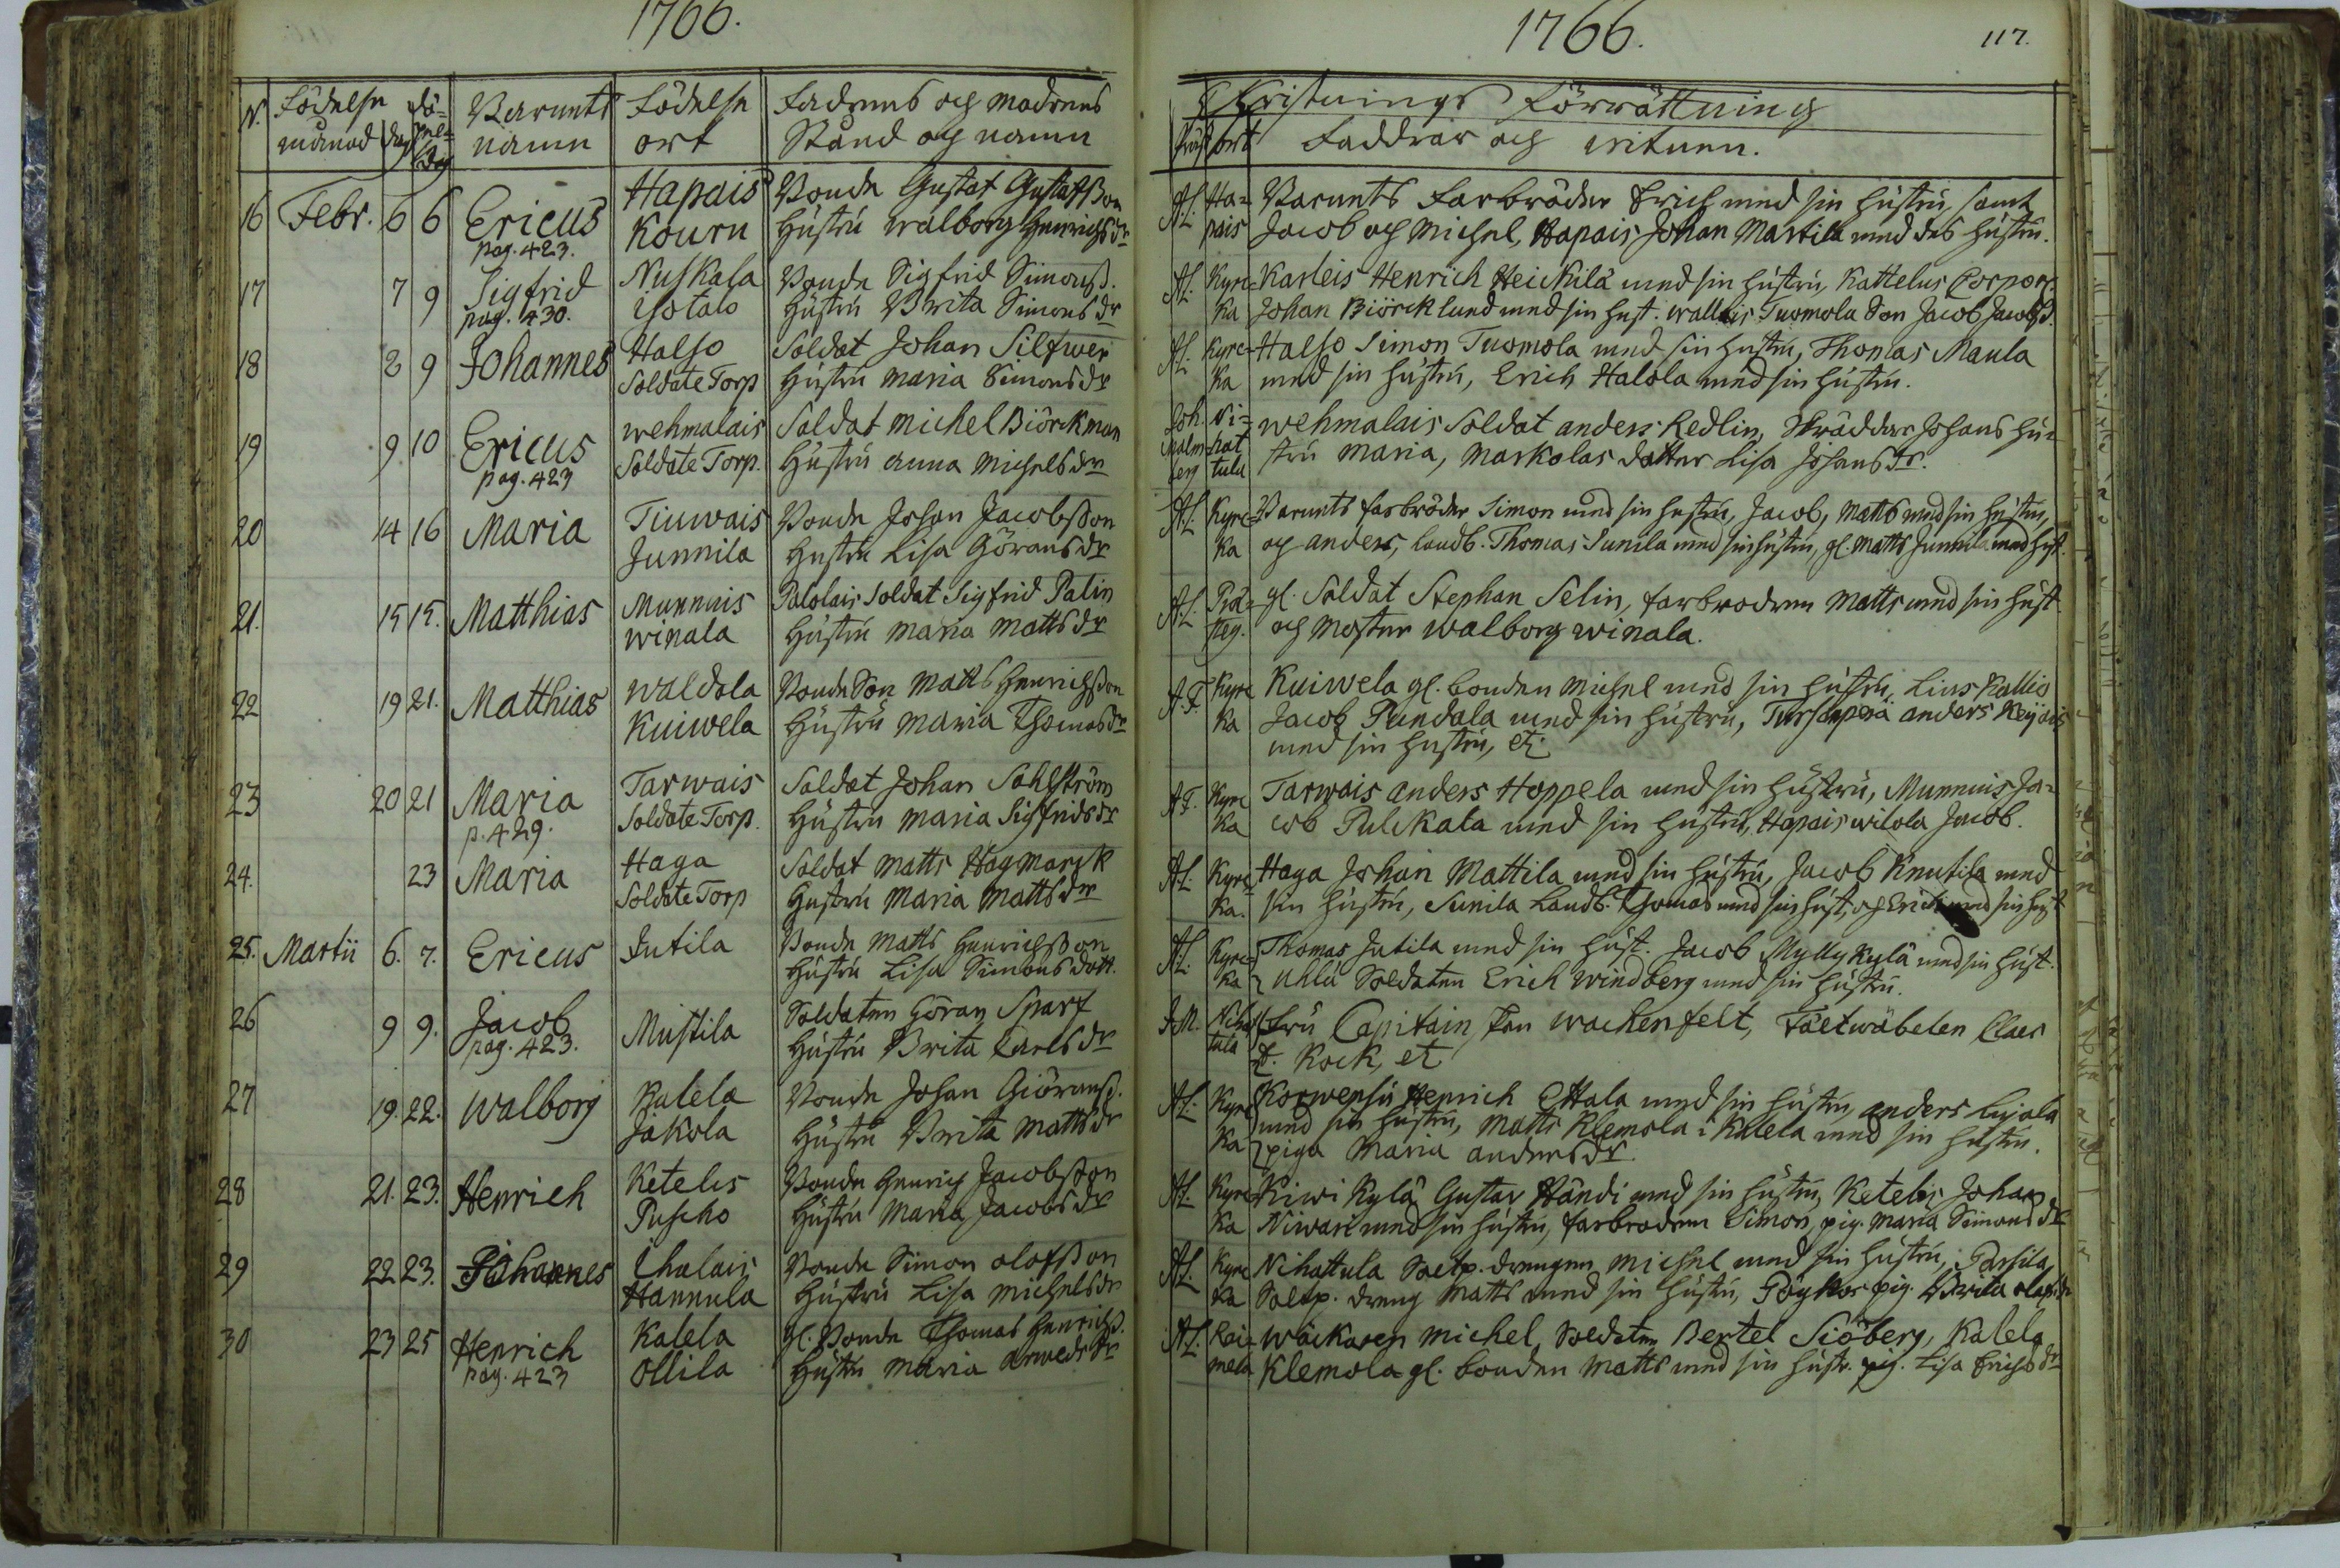 1766.
N. Födelse månad dag Döpne- dag Barnets namn Födelse ort Fadrens och modrens Stånd och namn
16 Febr. 6 6 Ericus Hapais Bonde Gustaf Gustafsson
pag. 423. Kouru Hustru Walborg Henrichsdr
17 7 9 Sigfrid Nuskala Bonde Sigfrid Simonss.
pag. 430. Isotalo Hustru Brita Simonsdr
18 8 9 Johannes Halso Soldat Johan Silfwer
Soldate Torp Hustru Maria Simonsdr
19 9 10 Ericus Wehmalais Soldat Michel Biörckman
pag. 423 Soldate Torp. Hustru Anna Michelsdr
20 14 16 Maria Tiuwais Bonde Johan Jacobsson
Junnila Hustru Lisa Göransdr
21. 15 15. Matthias Munnuis Palolais Soldat Sigfrid Palin
Winala Hustru Maria Mattsdr
22 19 21. Matthias Waldola Bonde Son Matts Henrichsson
Kuiwela Hustru Maria Thomasdr
23 20 21 Maria Tarwais Soldat Johan Sahlström
p. 429. Soldate Torp. Hustru Maria Sigfridsdr
24. 23 Maria Haga Soldat Matts Hagmarck
Soldate Torp Hustru Maria Mattsdr
25. Martii 6. 7. Ericus Jutila Bonde Matts Henrichsson
Hustru Lisa Simonsdott.
26 9 9. Jacob Mustila Soldaten Göran Sparf
pag. 423. Hustru Brita Carlsdr
27 19. 22. Walborg Kalela Bonde Johan Giöranss.
Jakola Hustru Brita Mattsdr
28 21. 23. Henrich Ketelus Bonde Henrich Jacobsson
Puscho Hustru Maria Jacobsdr
29 22 23. Johannes Ihalais Bonde Simon Olofsson
Hannula Hustru Lisa Michelsdr
30 23 25 Henrich Kalela gl. Bonde Thomas Henrichss.
pag. 423 Ollila Hustru Maria Arwedsdr
1766. 117.
Christnings Förrättning
Präst ort Faddrar och witnen.
AL. Ha- Barnets Farbröder Erich med sin hustru, samt
pais Jacob och Michel, Hapais Johan Martila med des hustru.
AL. Kyrc- Karleis Henrich Heickilä med sin hustru, Kattelus Corpor.
ka Johan Biörcklund med sin hust. Wallais Tuomola Son Jacob Jacobss.
AL. Kyrc- Halso Simon Tuomola med sin hustru, Thomas Maula
ka med sin hustru, Erich Halola med sin hustru.
Joh. Ni- Wehmalais Soldat Anders Redlin, Skräddar Johans hu-
Malm- hat stru Maria, Markolas dotter Lisa Johansdr.
berg tula
AL. Kyrc- Barnets farbröder Simon med sin hustru, Jacob, Matts med sin hustru,
ka och Anders, landb. Thomas Sunila med sin hustru, gl. Matts Junnila med hust.
AL. Prä- gl. Soldat Stephan Selin, farbrodren Matts med sin hust.
steg. och Moster Walborg Winala.
A.F. Kyrc Kuiwela gl. bonden Michel med sin hustru, Lius Kallio
ka Jacob Pundala med sin hustru, Tursunperä Anders Keijois
med sin hustru, etc
A.F. Kyrc Tarwais Anders Hoppela med sin hustru, Munnuis Ja-
ka cob Pulckala med sin hustru, Hapais Wilola Jacob.
AL. Kyrc- Haga Johan Mattila med sin hustru, Jacob Knutila med
ka. sin hustru, Sunila Landb. Thomas med sin hust, och Erich med sin hust
AL. Kyrc- Thomas Jutila med sin hust. Jacob Myllykylä med sin hust.
ka Uhlu Soldaten Erich Windberg med sin hustru.
J.M. Nihat Fru Capitain Fon Wachenfelt, Fäetwäbelen Claes
tula F. Kock, et
AL. Kyrc Korwensu Henrich Ettala med sin hustru, Anders Lujala
med sin hustru, Matts Klemola i Kalela med sin hustru.
ka piga Maria Andersdr.
AL. Kyrc Kiwi Kylä Gustav Händi med sin hustru, Ketelus Johan
ka Niwari med sin hustru, farbrodren Simon, pig. Maria Simonsdr
AL. Kyrc Nihattula Soltp. drengen Michel med sin hustru, Passila
ka Soltp. dreng Matts med sin hustru, Pöykor pig. Brita
AL. Rai- Wäckaren Michel, Soldaten Bertel Siöberg, Kalela
mela Klemola gl. bonden Matts med sin hustr. pig. Lisa Erichsdr